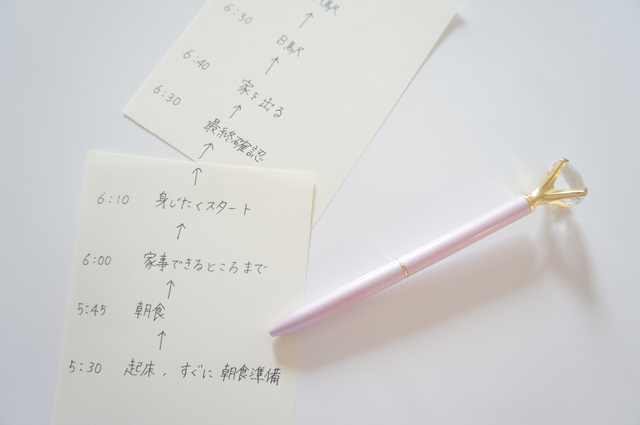 6:50 駅
↑
B駅
↑
6:40 家を出る
↑
6:30 最終確認
↑
↑
6:10 身じたくスタート
↑
6:00 家事できるところまで
↑
5:45 朝食
↑
5:30 起床、すぐに朝食準備